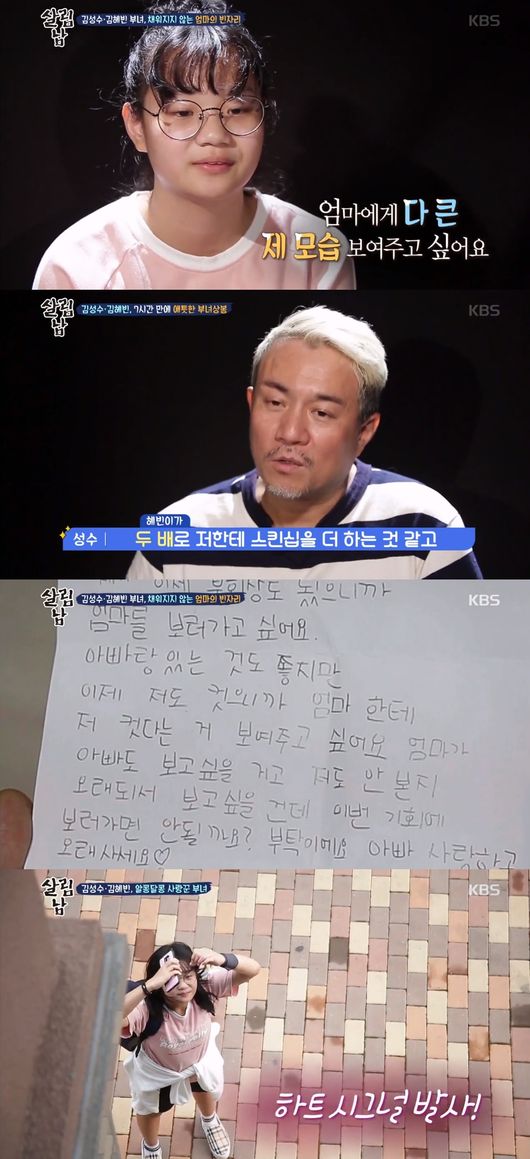 살림남
김성수·김혜빈 부녀, 채워지지 않는 엄마의 빈자리
KBS
엄마에게 다 큰
제 모습 보여주고 싶어요
살림남
김성수·김혜빈, 7시간 만에 애틋한 부녀상봉
KBS
혜빈이가
성수 | 두 배로 저한테 스킨십을 더 하는 것 같고
살림남
김성수·김혜빈 부녀, 채워지지 않는 엄마의 빈자리
KBS
이제 부회장도 됬으니까
엄마를 보러가고 싶어요.
아빠랑 있는 것도 좋지만
이제 저도 컷으니까 엄마 한테
저 컷다는 거 보여주고 싶어요 엄마가
아빠도 보고싶을 거고 저도 안 본지
오래되서 보고싶을 건데 이번 기회에
보러가면 안될까요? 부탁이에요 아빠 사랑하고
오래사세요♡
살림남
김성수·김혜빈, 알콩달콩 사랑꾼 부녀
KBS
하트 시그널 발사!